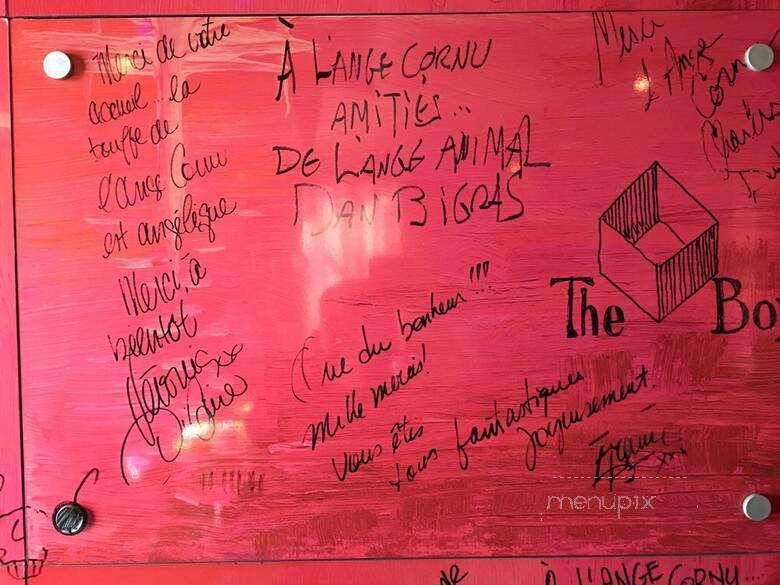 Merci de votre
accueil.. la
touffe de
l'ange Cornu
est angélique
Merci, à
bientôt
À L'ANGE CORNU
AMITIÉS...
DE L'ANGE ANIMAL
DAN BIGRAS
Merci
l'Ange
Corn
Charles
The Bo
Que du bonheur!!!
Mille mercis!
Vous êtes
tous fantastiques
joyeusement.
menupix
À L'ANGE CORNU...